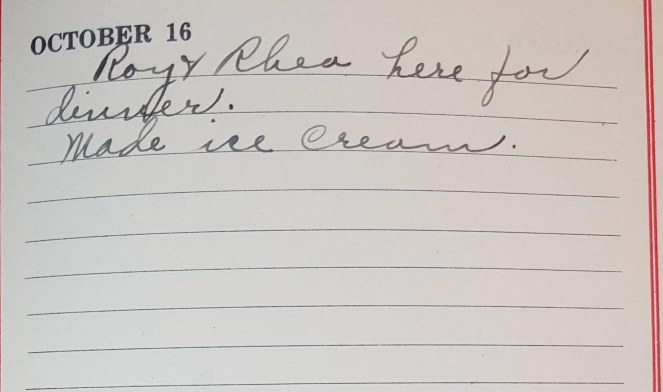 OCTOBER 16
Roy & Rhea here for
dinner.
Made ice cream.